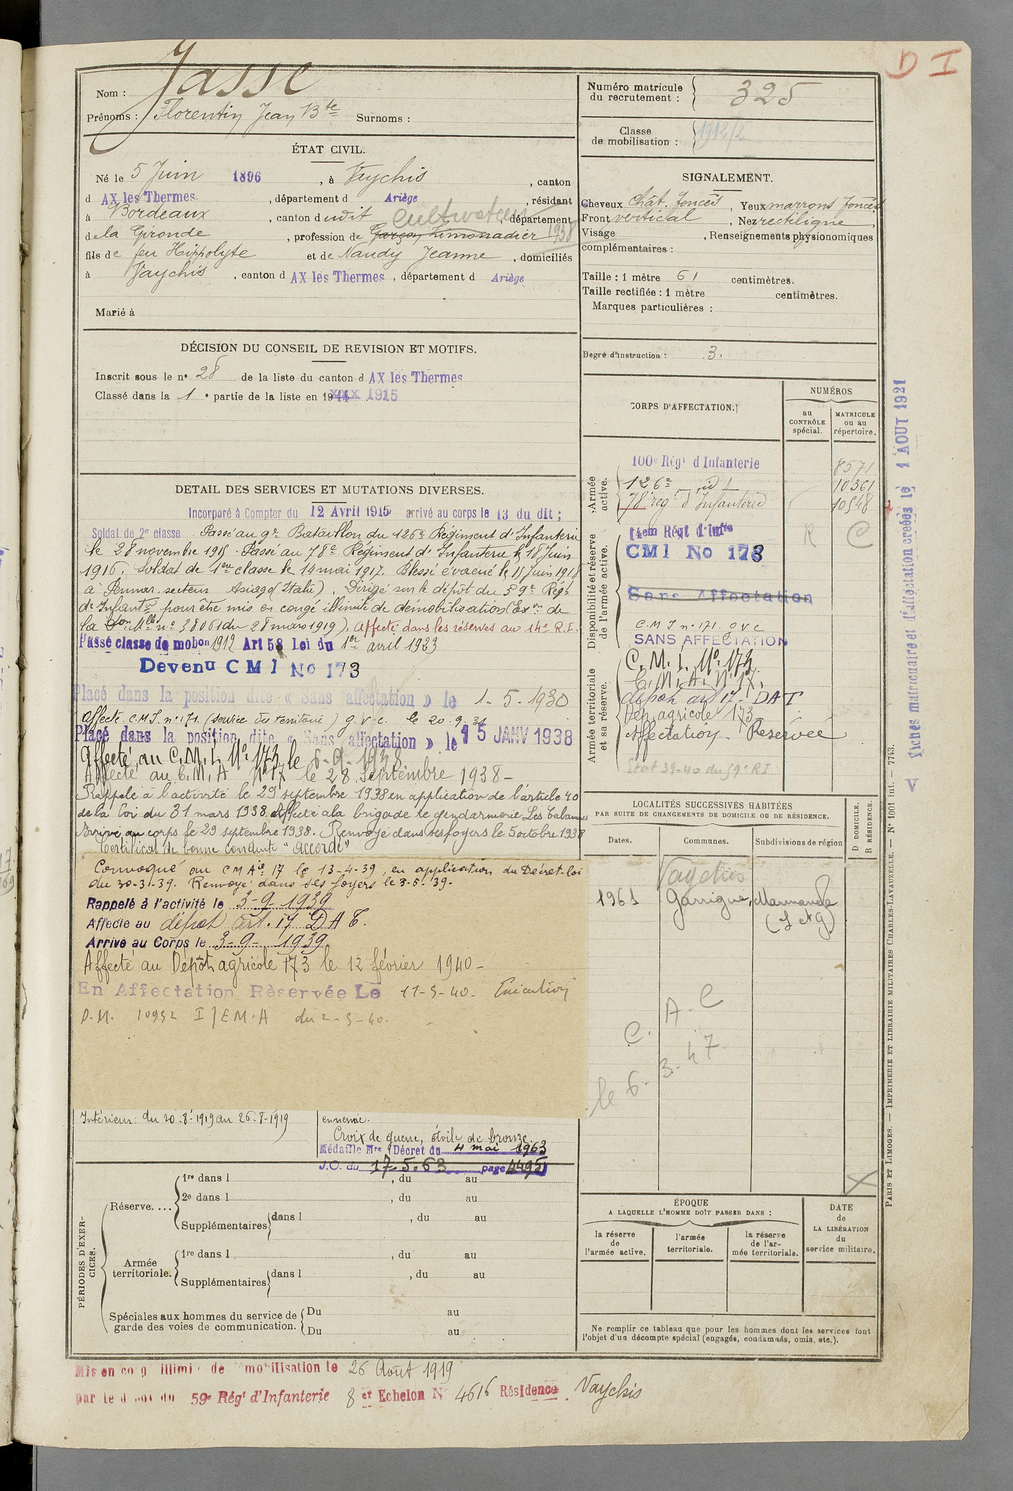 D I
Nom : Jasse
Prénoms : Florentin Jean Bte Surnoms :
Numéro matricule du recrutement : 325
Classe de mobilisation : 1912/2
ÉTAT CIVIL.
Né le 5 Juin 1896, à Vaychis, canton
d AX les Thermes, département d Ariège, résidant
à Bordeaux, canton dudit, département
de la Gironde, profession de Garçon Limonadier cultivateur 1938
fils de feu Hippolyte et de Naudy Jeanne, domiciliés
à Vaychis, canton d AX les Thermes, département d Ariège
Marié à
SIGNALEMENT.
Cheveux Chât. foncés Yeux marrons foncés
Front vertical, Nez rectiligne,
Visage , Renseignements physionomiques
complémentaires :
Taille : 1 mètre 61 centimètres.
Taille rectifiée : 1 mètre centimètres.
Marques particulières :
Degré d'instruction : 3.
DÉCISION DU CONSEIL DE REVISION ET MOTIFS.
Inscrit sous le n° 28 de la liste du canton d AX les Thermes
Classé dans la 1e partie de la liste en 19 1915
DETAIL DES SERVICES ET MUTATIONS DIVERSES.
Incorporé à Compter du 12 Avril 1915 arrivé au corps le 13 du dit ;
Soldat de 2e classe Passé au 9e Bataillon du 126e Régiment d'Infanterie
le 28 novembre 1915. Passé au 78e Régiment d'Infanterie le 18 Juin
1916. Soldat de 1ère classe le 14 mai 1917. Blessé évacué le 15 juin 1918
à Pennar secteur Asiago (Italie). Dirigé sur le dépôt du 59e Régt
d'Infanterie pour être mis en congé illimité de démobilisation (Exon de
la Don Mlle n° 38061 du 28 mars 1919). Affecté dans les réserves au 14e R.I.
Passé classe de mobon 1912 Art 58 Loi du 1er avril 1923
Devenu CMI No 173
Placé dans la position dite « Sans affectation » le 1-5-1930
Affecté C.M.I. n° 171 (Service du Territoire) g.v.c. le 20.9.34
Placé dans la position dite « Sans affectation » le 15 JANV 1938
Affecté au C.M.I. N° 173 le 6-9-1938
Affecté au C.M.A N° 17 le 28 Septembre 1938 -
Rappelé à l'activité le 29 septembre 1938 en application de l'article 40
de la Loi du 31 mars 1928, affecté à la brigade de gendarmerie Les Cabannes
Arrivé au corps le 29 septembre 1938. Renvoyé dans ses foyers le 5 octobre 1938
Certificat de bonne conduite "accordé"
Convoqué au CMA° 17 le 13-4-39, en application du Décret-loi
du 20-3-39. Renvoyé dans ses foyers le 3-5-39-
Rappelé à l'activité le 3-9-1939
Affecté au dépôt art. 17 DAT.
Arrivé au Corps le 3-9-1939
Affecté au Dépôt agricole 173 le 12 février 1940 -
En Affectation Réservée Le 11-5-40. Exécution
D.M. 10952 I/EMA du 2-5-40.
Intérieur : du 20.8.1919 au 26-8-1919
ennemi.
Croix de guerre, étoile de bronze.
Médaille Mre Décret du 4 mai 1963
J.O. du 17.5.63 page 4495
CORPS D'AFFECTATION.
NUMÉROS
au CONTRÔLE spécial.
MATRICULE ou au répertoire.
Armée active.
100e Régt d'Infanterie 8571
126e — d° 10361
78e rég t d'Infanterie 10548
Disponibilité et réserve de l'armée active.
14eme Régt d'Infie R C
CMI No 173
Sans Affectation
C.M.I n° 171 G V C
SANS AFFECTATION
Armée territoriale et sa réserve.
C.M.I. N° 173
C.M.A. N° 17.
dépôt art 17 DAT
Dép. agricole 173
Affectation Réservée
Etat 39-40 du 59e RI
Fiches matriculaire et d'affectation créées le 1 AOUT 1921
V
LOCALITÉS SUCCESSIVES HABITÉES
PAR SUITE DE CHANGEMENTS DE DOMICILE OU DE RÉSIDENCE.
Dates. Communes. Subdivisions de région D DOMICILE. R RÉSIDENCE.
Vaychis
1961 Garrigue, Marmande
(L et G)
C. A. C
le 6. 3. 47
PÉRIODES D'EXERCICES.
Réserve.... 1re dans l , du au
2e dans l , du au
Supplémentaires dans l , du au
Armée territoriale. 1re dans l , du au
Supplémentaires dans l , du au
Spéciales aux hommes du service de garde des voies de communication. Du au
Du au
ÉPOQUE
A LAQUELLE L'HOMME DOIT PASSER DANS :
la réserve de l'armée active.
l'armée territoriale.
la réserve de l'armée territoriale.
DATE de LA LIBÉRATION du service militaire.
Ne remplir ce tableau que pour les hommes dont les services font
l'objet d'un décompte spécial (engagés, condamnés, omis, etc.).
PARIS ET LIMOGES. — IMPRIMERIE ET LIBRAIRIE MILITAIRES CHARLES-LAVAUZELLE. — N° 10/1 int. — 7743.
Mis en congé illimité de démobilisation le 26 Août 1919
par le dépôt du 59e Régt d'Infanterie 8 er Echelon N° 4616 Résidence Vaychis